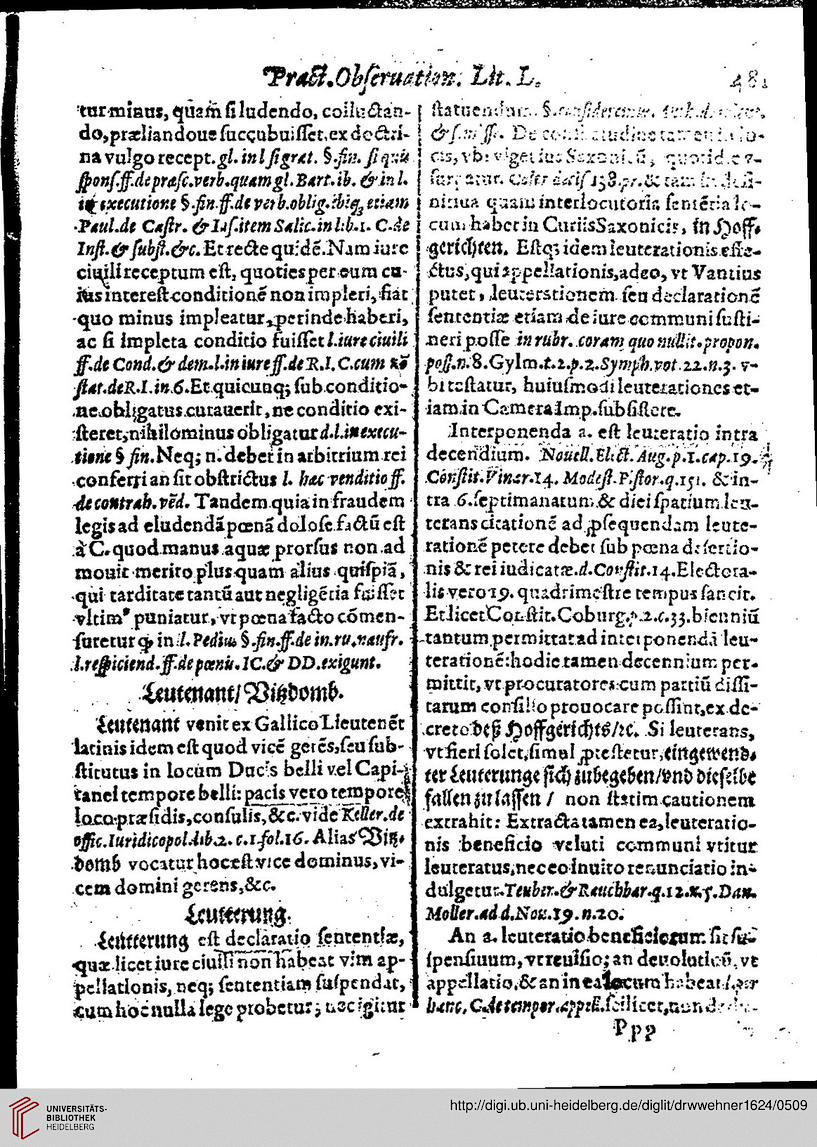 Pract. Obseruation. Lit. L. 481
tur minus, quam̃ si ludendo, colluctan-
do, præliandoue succubuisset, ex doctri-
na vulgo recept. gl. in l si grat. §. fin. si quis
spons. ff. de præsc. verb. quam gl. Bart. ib. & in l.
executione §. fin. ff. de verb. oblig. ibiq; etiam
Paul. de Castr. & Ias. item Salic. in l. 1. C. de
Inst. & subst. &c. Et recte quidẽ. Nam iure
ciuili receptum est, quoties per eum cu-
ius interest conditionẽ non impleri, fiat
quo minus impleatur, perinde haberi,
ac si impleta conditio fuisset l. iure ciuili
ff. de Cond. & dem. l. in iure ff. de R. I. C. cum
stat. de R. I. in. 6. Et quicunq; sub conditio-
ne obligatus curauerit, ne conditio exi-
steret, nihilominus obligatur d. l. in execu-
tione § fin. Neq; n. debet in arbitrium rei
conferri an sit obstrictus l. hac venditio ff.
de contrah. vẽd. Tandem quia in fraudem
legis ad eludendã pœnã dolose factũ est
à C. quod manus aquæ prorsus non ad
mouit merito plus quam alius quispiã,
qui tarditate tantũ aut negligẽtia fuisset
vltim⁹ puniatur, vt pœna facto cõmen-
suretur in l. Pedius §. fin. ff. de in. ru. naufr.
l. respiciend. ff. de pœnis. IC. & DD. exigunt.
Leutenant/ Vitzdomb.
Leutenant venit ex Gallico Lieutenẽt
latinis idem est quod vicẽ gerẽs, seu sub-
stitutus in locum Ducis belli vel Capi-
tanei tempore belli: pacis vero tempore
loco præsidis, consulis, &c. vide Keller. de
offic. Iuridicopol. lib. 2. c. 1. fol. 16. Alias Vitz-
domb vocatur hoc est vice dominus, vi-
cem domini gerens, &c.
Leutterung.
Leutterung est declaratio sententiæ,
quæ licet iure ciuili non habeat vim ap-
pellationis, neq; sententiam suspendat,
cum hoc nulla lege probetur; nec igitur
statuendum. §.
& De consuetudine tamen in lo-
cis, vbi viget ius Saxonicũ, quotidie v-
surpatur. Coler decis 138. pr. & tam in defi-
nitiua quam interlocutoria sentẽtia lo-
cum habet in Curiis Saxonicis, in Hoff-
gerichten. Estq; idem leuterationis effe-
ctus, qui appellationis, adeo, vt Vantius
putet, leuterationem seu declarationẽ
sententiæ etiam de iure communi susti-
neri posse in rubr. coram quo nullit. propon.
poss. n. 8. Gylm. t. 2. p. 2. Symph. vot. 22. n. 3. v-
bi testatur, huiusmodi leuterationes et-
iam in Camera Imp. subsistere.
Interponenda a. est leuteratio intra
decendium. Nouell. Elect. Aug. p. 1. cap. 19.
Constit. Vinar. 14. Modest. Pistor. q. 151. & in-
tra 6. septimanarum & diei spatium leu-
terans citationẽ ad ꝓsequendam leute-
rationẽ petere debet sub pœna desertio-
nis & rei iudicatæ. d. Constit. 14. Electora-
lis vero 19. quadrimestre tempus sancit.
Et licet Constit. Coburg. p. 2. c. 33. bienniũ
tantum permittat ad interponendã leu-
terationẽ: hodie tamen decennium per-
mittit, vt procuratores cum partiũ dissi-
tarum consilio prouocare possint, ex de-
creto deß Hoffgerichts/ ꝛc. Si leuterans,
vt fieri solet, simul ꝓtestetur, eingewend-
ter Leuterunge sich zubegeben/ vnd dieselbe
fallen zu lassen / non statim cautionem
extrahit: Extracta tamen ea, leuteratio-
nis beneficio veluti communi vtitur
leuteratus, nec eo inuito renunciatio in-
dulgetur. Teuber. & Rauchbar. q. 12. n. 5. Dan.
Moller. ad d. Nou. 19. n. 20.
An a. leuteratio beneficiorum sit su-
spensiuum, vt reuisio; an deuolutiuũ, vt
appellatio, & an in ea locum habeat l. per
hanc, C. de tempor. appell. scilicet, non
Ppp
UNIVERSITÄTS-
BIBLIOTHEK
HEIDELBERG
http://digi.ub.uni-heidelberg.de/diglit/drwwehner1624/0509